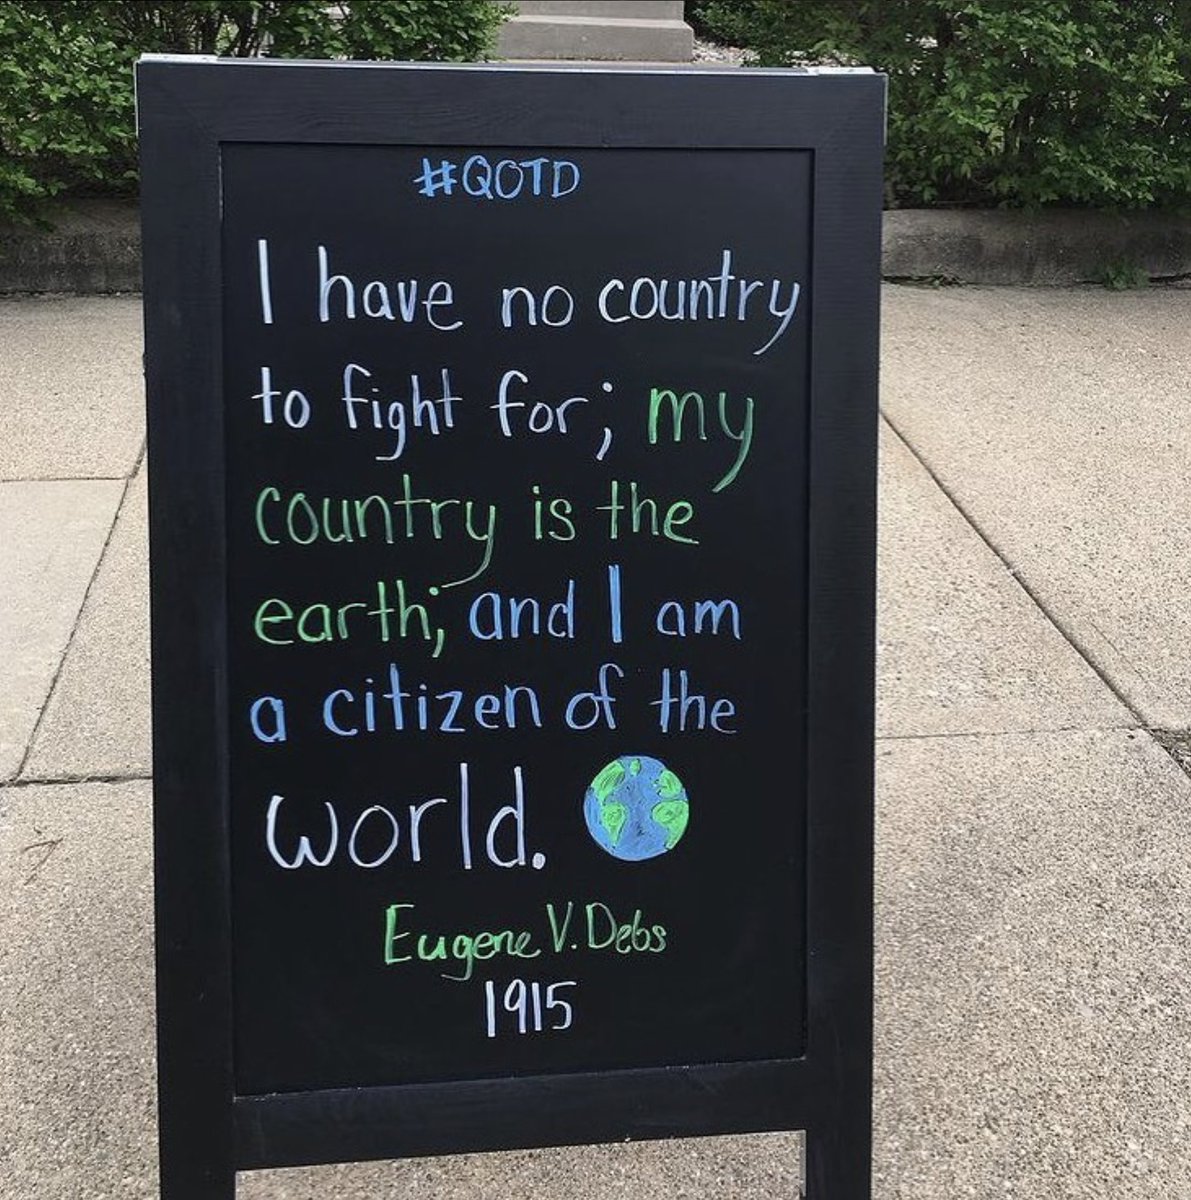 #QOTD
I have no country
to fight for; my
country is the
earth; and I am
a citizen of the
world.
Eugene V. Debs
1915